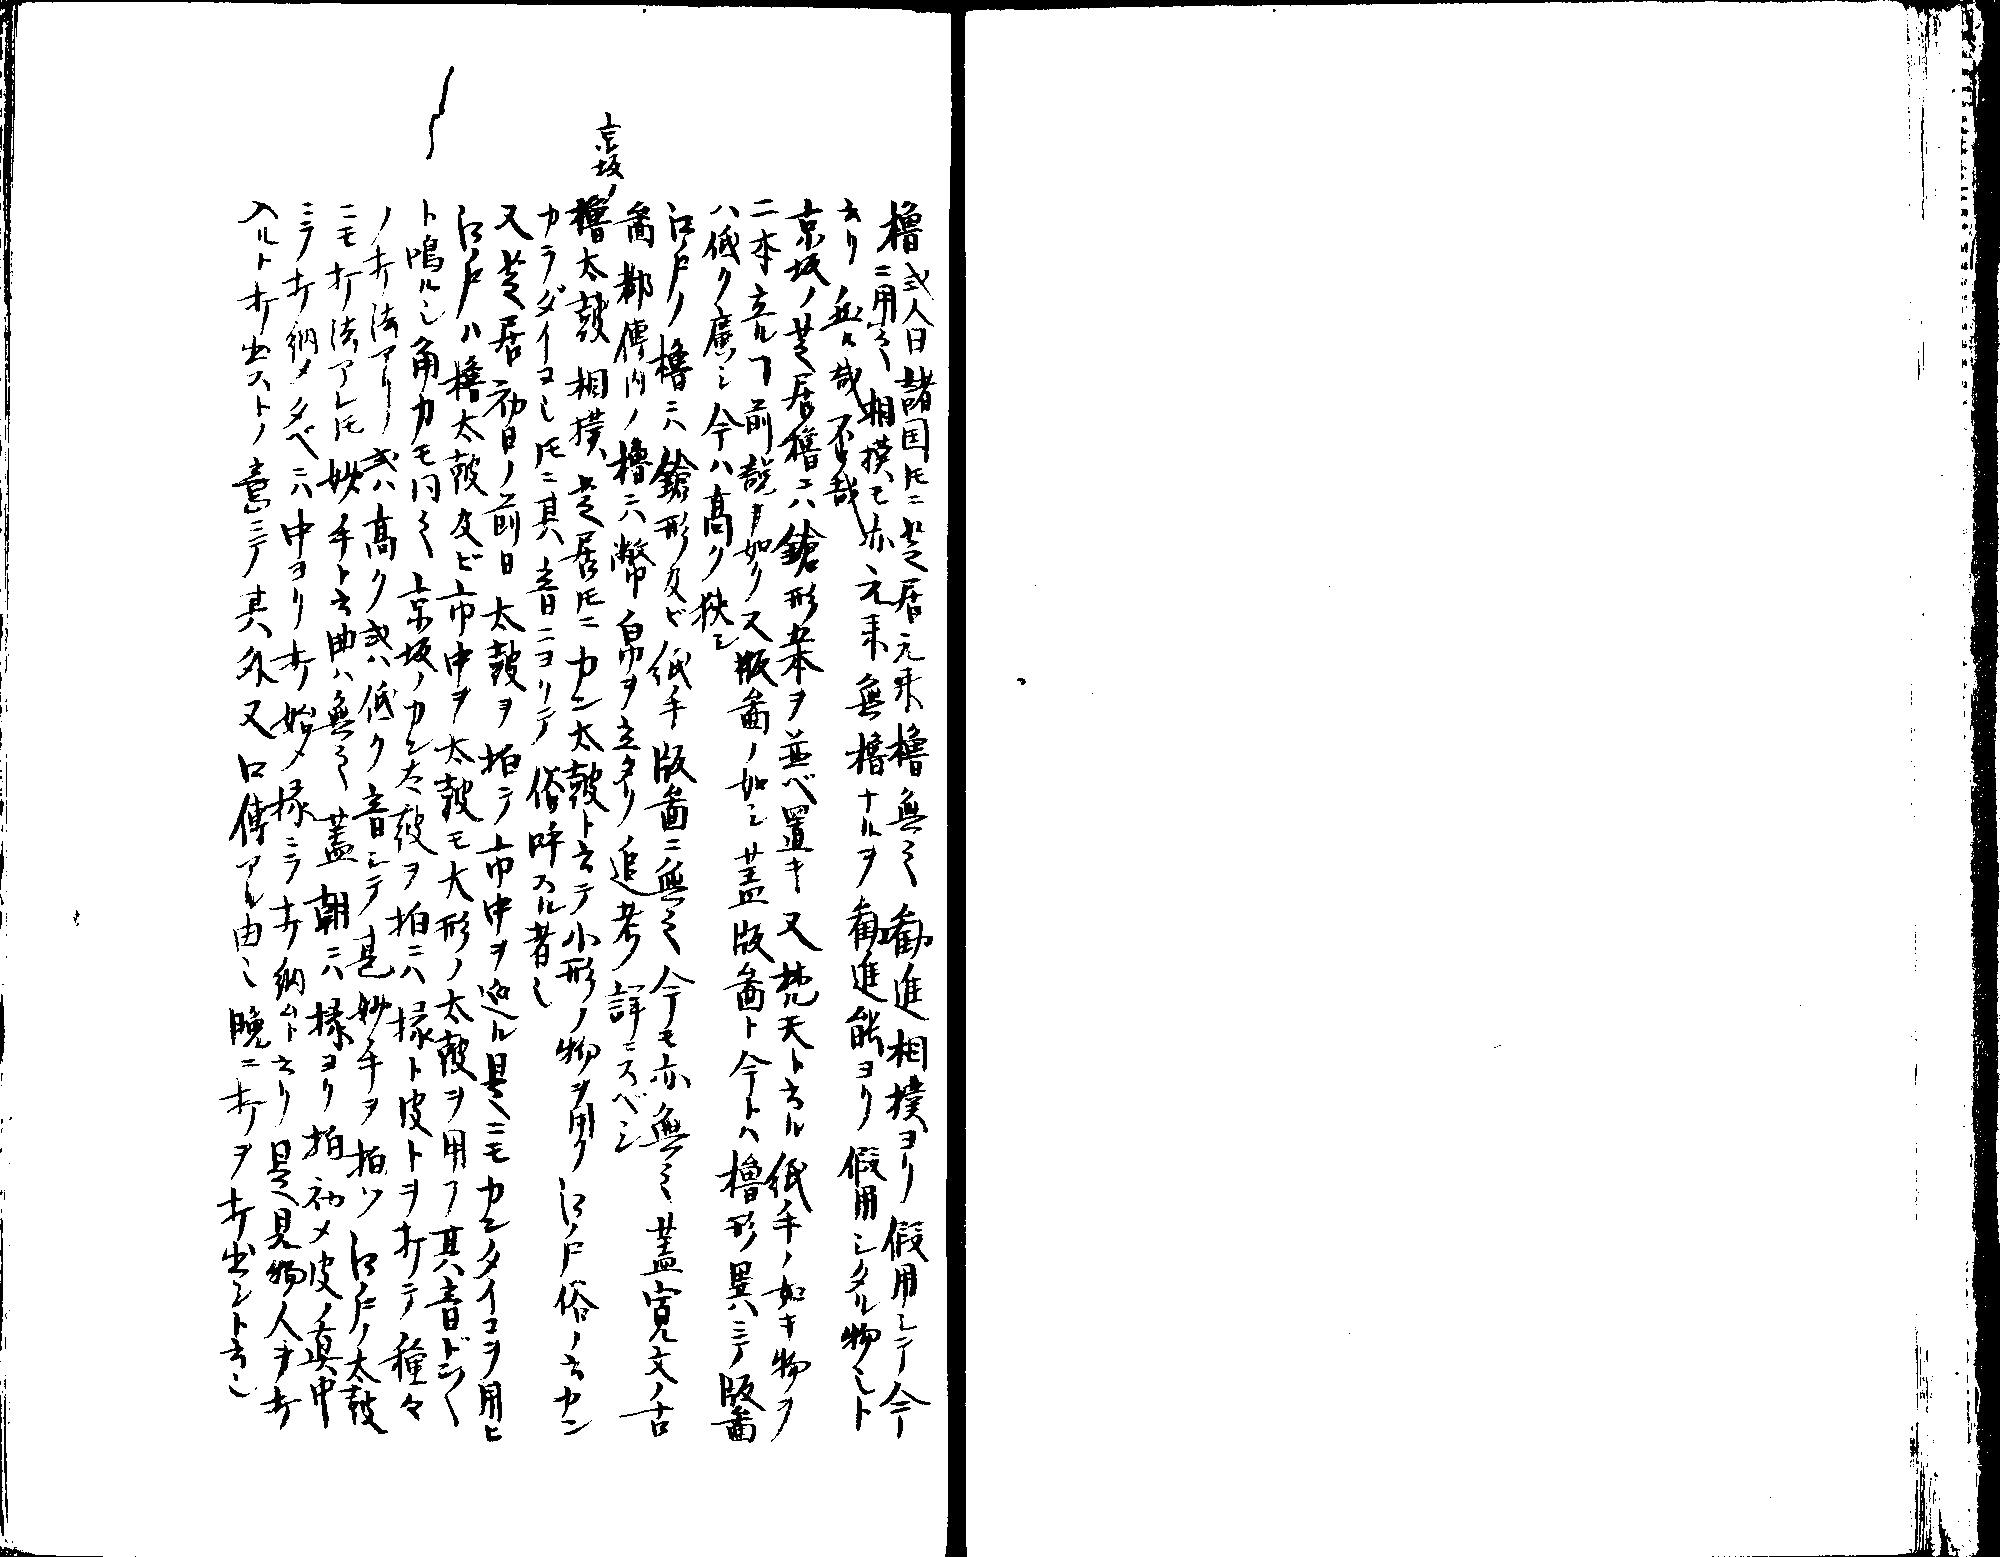 櫓或人曰諸国トモニ芝居元来櫓無之勧進相撲ヨリ假用シテ今
ニ用之相撲モ亦元来無櫓ナルヲ勧進能ヨリ假用シタル物也ト
云リ然哉否哉
京坂ノ芝居櫓ニハ鎗形五本ヲ並ベ置キ又梵天ト云ル紙手ノ如キ物ヲ
二本立ルヿ前説ノ如ク又版畵ノ如シ蓋版畵ト今トハ櫓形ノ異ハニテ版畵
ハ低ク廣シ今ハ高ク狹シ
江戸ノ櫓ニハ鎗形及ビ紙手版畵ニ無之今モ亦無之蓋寛文ノ古
畵都傳内ノ櫓ニハ幣帛ヲ立タリ追考詳ニスベシ
京坂ノ櫓太鼓相撲芝居トモニカン太鼓ト云テ小形ノ物ヲ用フ江戸俗ノ云カン
カラダイコ也トモニ其音ニヨリテ俗呼スル者也
又芝居初日ノ前日太鼓ヲ拍テ市中ヲ巡ル是ニモカンタイコヲ用ヒ
江戸ハ櫓太鼓及ビ市中ヲ太鼓モ大形ノ太鼓ヲ用フ其音ドン〱
ト鳴ル也角力モ同之京坂ノカン太鼓ヲ拍ニハ椽ト皮トヲ打テ種々
ノ打法アリ或ハ高ク或ハ低ク音シテ甚妙手ヲ拍ツ江戸ノ太鼓
ニモ打法アレトモ妙手ト云曲ハ無之蓋朝ニハ椽ヨリ拍初メ皮ノ真中
ニテ打納メタベニハ中ヨリ打始メ椽ニテ打納ムト云リ是見物人ヲ打
入ルト打出ストノ意ニテ其外又口傳アル由也晩ニ打ヲ打出シト云也